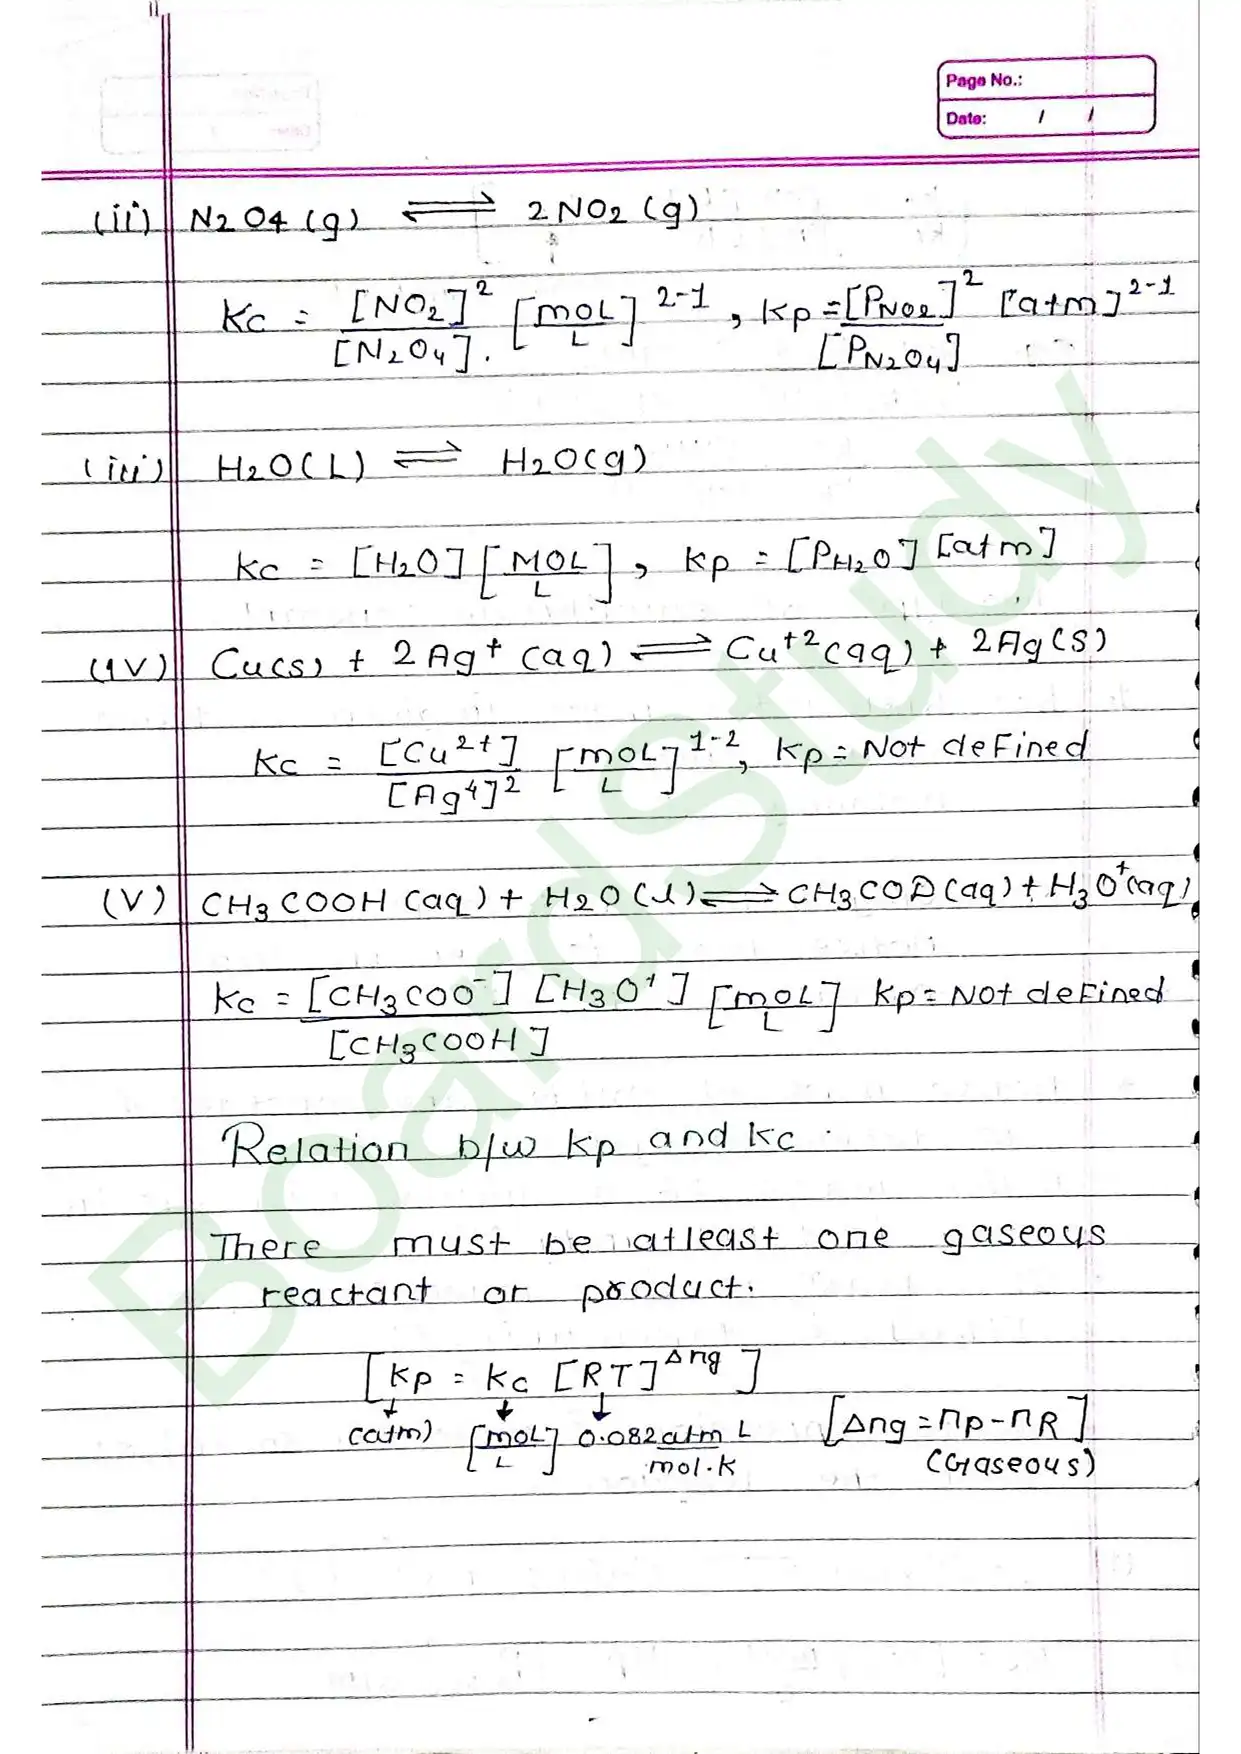 Page No.:
Date: / /
(ii) N2O4(g) ⇌ 2NO2(g)
Kc = [NO2]^2 / [N2O4]. [mOL/L]^2-1, Kp = [PNO2]^2 / [PN2O4] [atm]^2-1
(iii) H2O(L) ⇌ H2O(g)
Kc = [H2O] [MOL/L], Kp = [PH2O] [atm]
(iv) Cu(s) + 2Ag+ (aq) ⇌ Cu+2(aq) + 2Ag(s)
Kc = [Cu2+] / [Ag+]2 [mOL/L]^1-2, Kp = Not deFined
(V) CH3COOH (aq) + H2O(l) ⇌ CH3COO(aq) + H3O+(aq)
Kc = [CH3COO-] [H3O+] / [CH3COOH] [mOL/L] Kp = Not deFined
Relation b/w Kp and Kc
There must be atleast one gaseous
reactant or product.
[Kp = Kc [RT]^Δng]
(atm) [mOL/L] 0.082 atm L / mol.K [Δng = np - nR]
(Gaseous)
BoardStudy